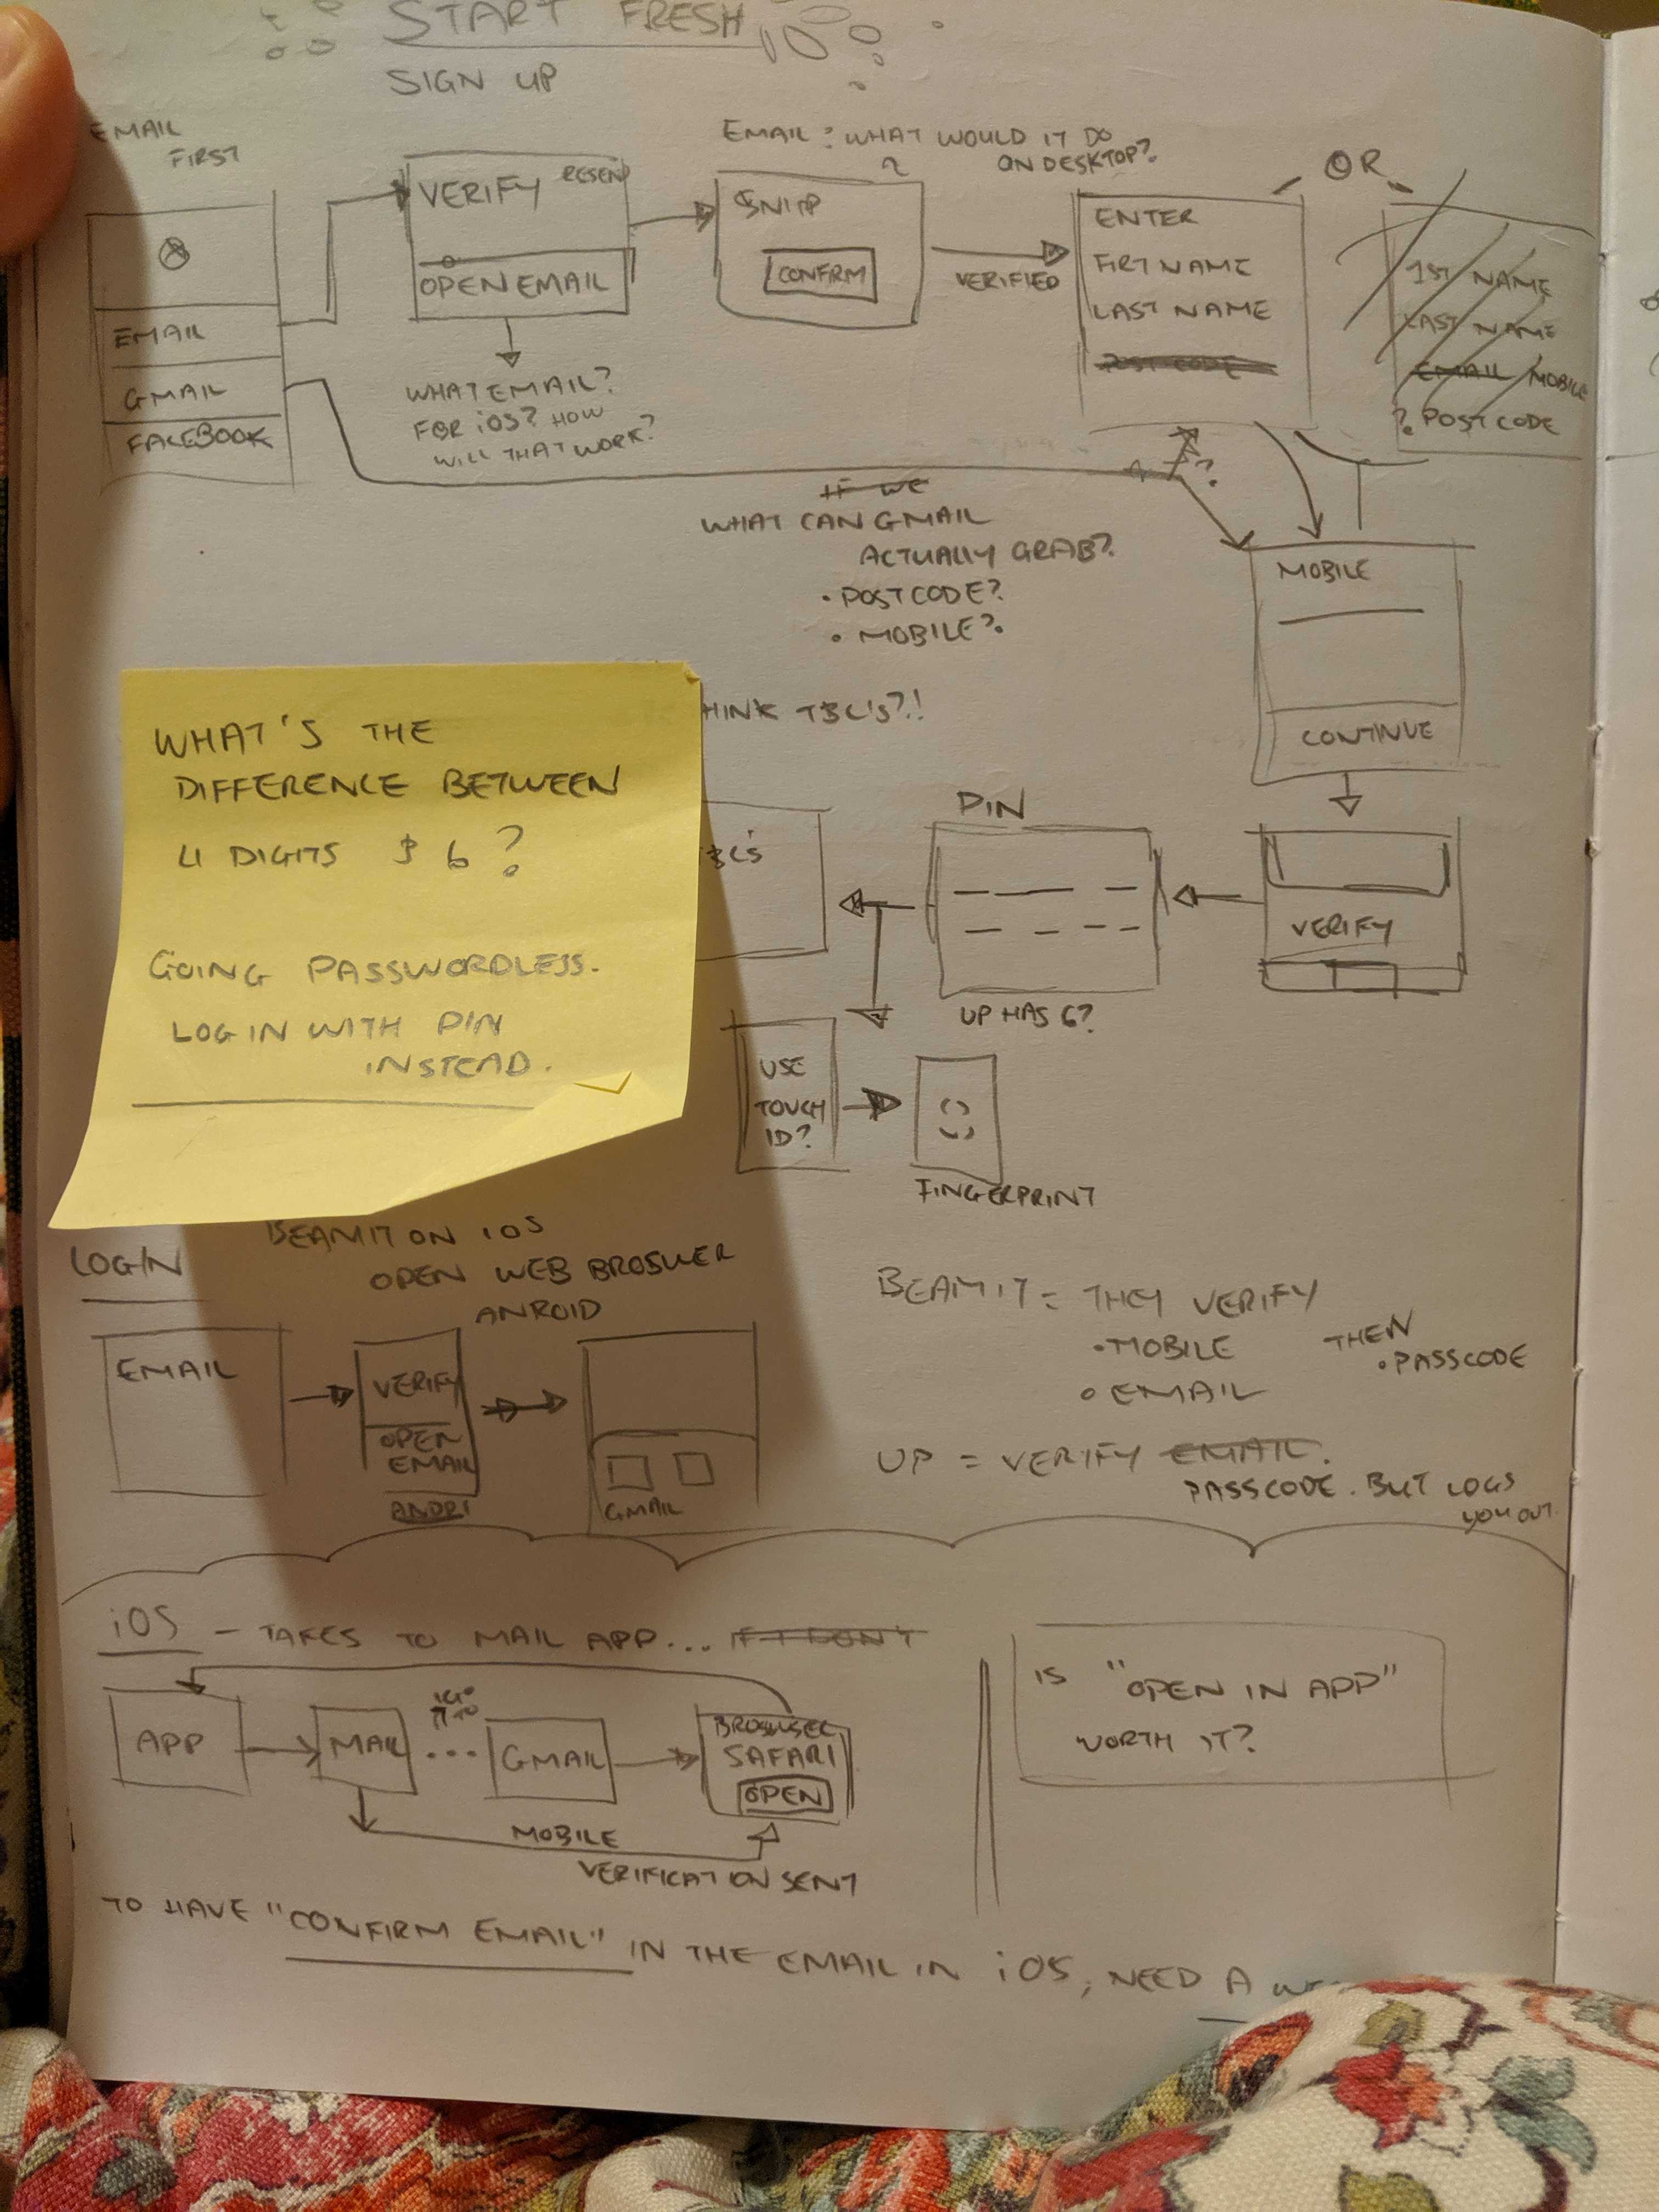 START FRESH
SIGN UP
EMAIL
FIRST
EMAIL
GMAIL
FACEBOOK
VERIFY RESEND
OPEN EMAIL
WHAT EMAIL?
FOR iOS? HOW
WILL THAT WORK?
EMAIL: WHAT WOULD IT DO
ON DESKTOP?
CONFIRM
VERIFIED
ENTER
FIRT NAME
LAST NAME
POST CODE
OR
1ST NAME
LAST NAME
EMAIL MOBILE
? POSTCODE
?
IF WE
WHAT CAN GMAIL
ACTUALLY GRAB?
• POSTCODE?
• MOBILE?
MOBILE
CONTINUE
VERIFY
PIN
UP HAS 6?
USE
TOUCH
ID?
FINGERPRINT
WHAT'S THE
DIFFERENCE BETWEEN
4 DIGITS & 6?
GOING PASSWORDLESS.
LOGIN WITH PIN
INSTEAD.
LOGIN
BEAMIT ON iOS
OPEN WEB BROSWER
ANROID
EMAIL
VERIFY
OPEN
EMAIL
ANDRI
GMAIL
BEAMIT = THEY VERIFY
• MOBILE
• EMAIL
THEN
• PASSCODE
UP = VERIFY EMAIL.
PASSCODE. BUT LOGS
YOU OUT.
iOS – TAKES TO MAIL APP... IF I DON'T
APP
MAIL ... GMAIL
BROWSER
SAFARI
OPEN
MOBILE
VERIFICATION SENT
IS "OPEN IN APP"
WORTH IT?
TO HAVE "CONFIRM EMAIL" IN THE EMAIL IN iOS, NEED A